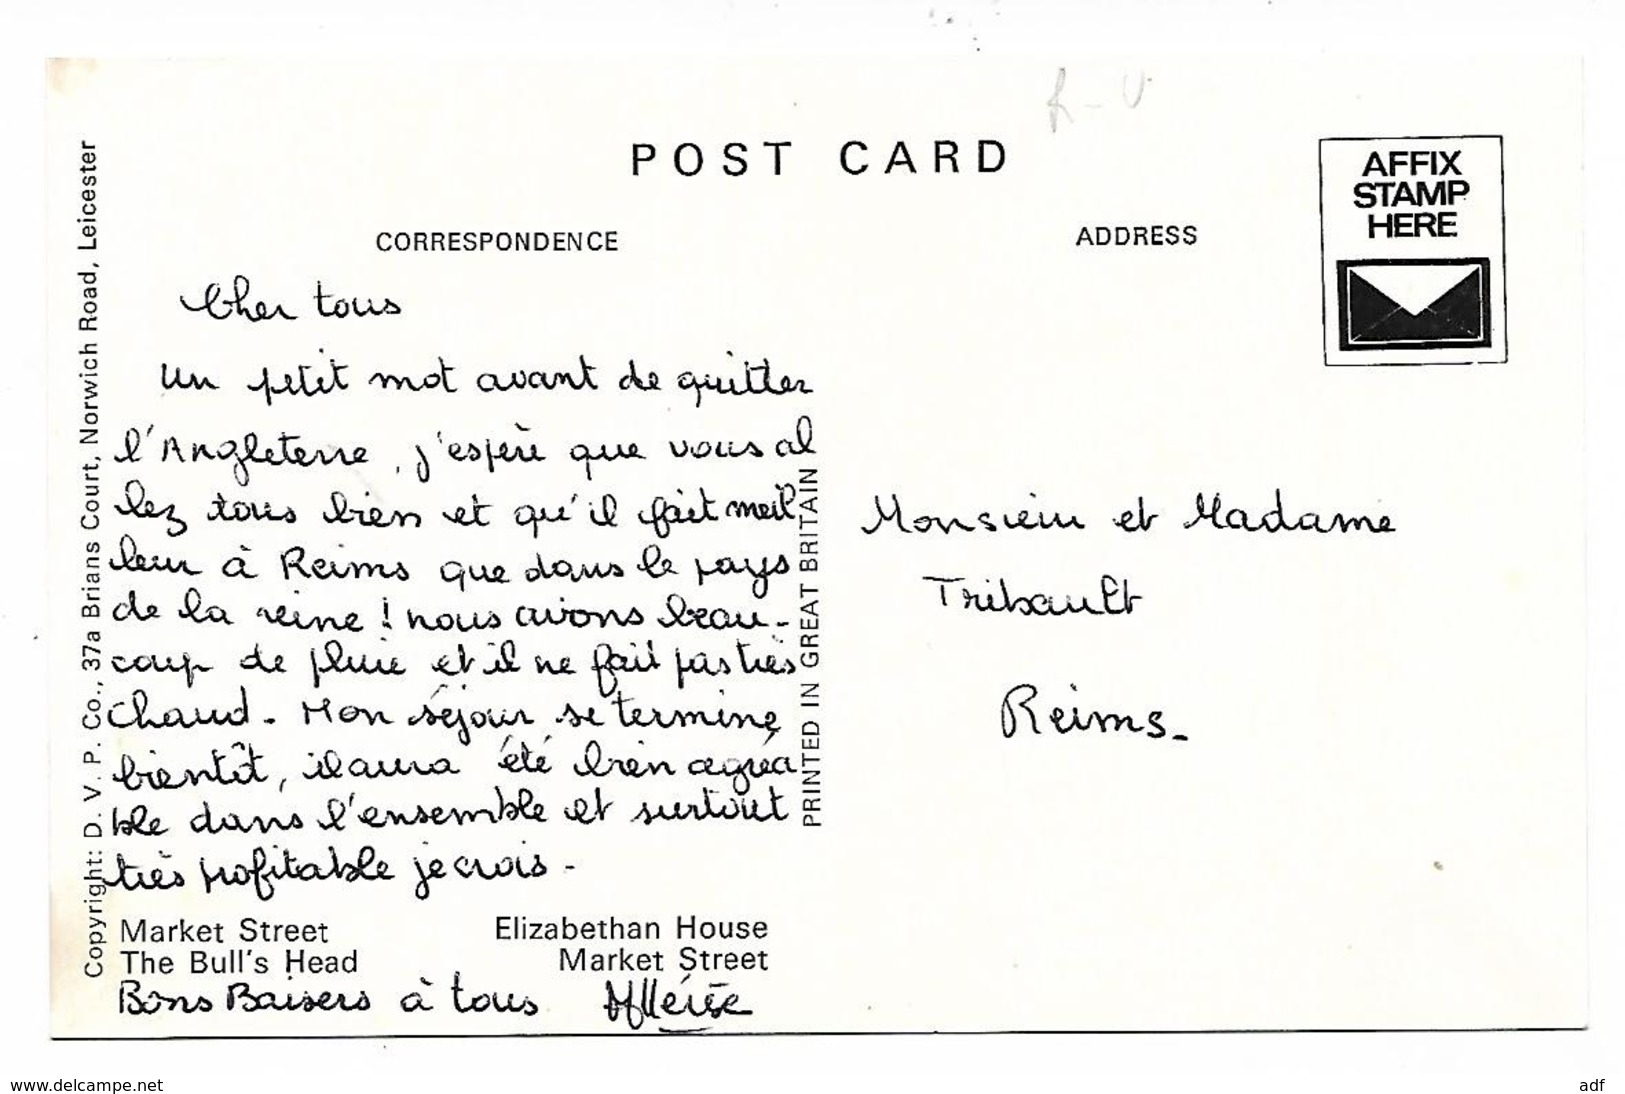 R-U
POST CARD
CORRESPONDENCE
ADDRESS
AFFIX
STAMP
HERE
Copyright: D. V. P. Co., 37a Brians Court, Norwich Road, Leicester
Cher tous
Un petit mot avant de quitter
l'Angleterre, j'espère que vous al
lez tous bien et qu'il fait meil
leur à Reims que dans le pays
de la reine ! nous avons beau-
coup de pluie et il ne fait pas très
chaud - Mon séjour se termine
bientôt, il aura été bien agréa
ble dans l'ensemble et surtout
très profitable je crois -
Market Street
The Bull's Head
Elizabethan House
Market Street
Bons Baisers à tous
PRINTED IN GREAT BRITAIN
Monsieur et Madame
Tribault
Reims -
www.delcampe.net
adf